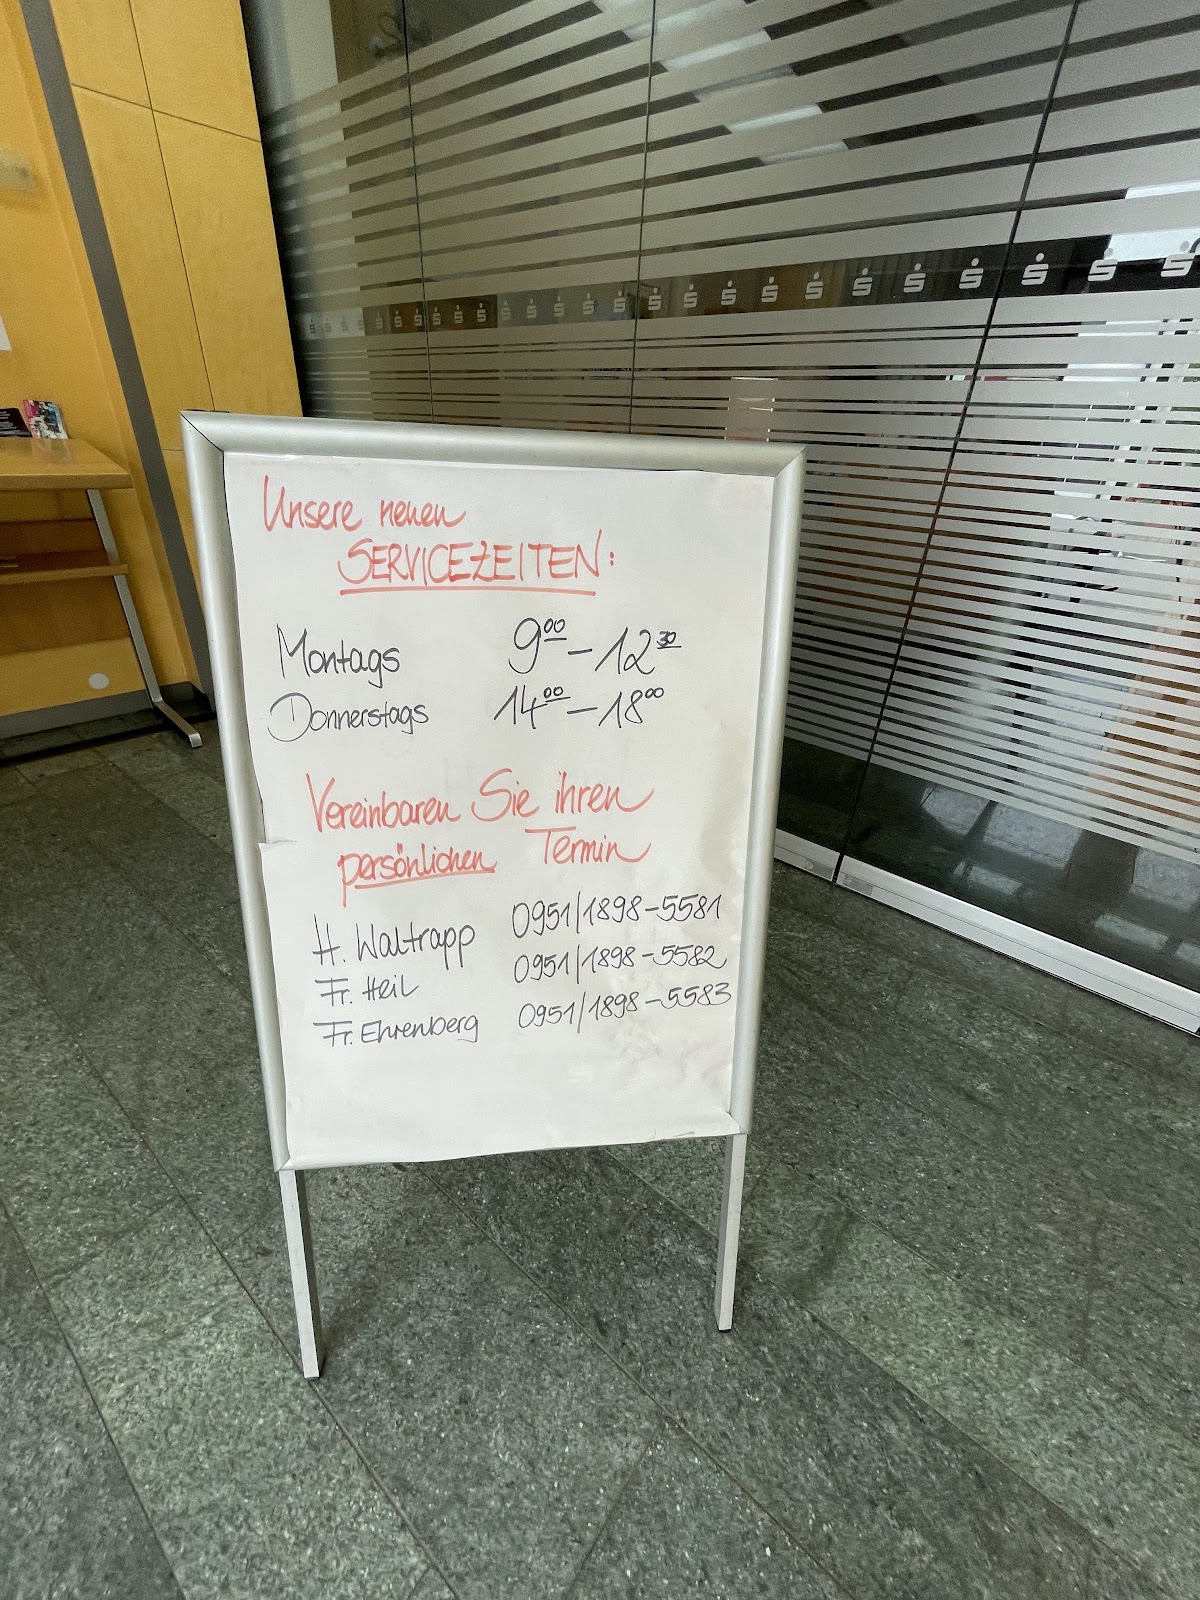 Unsere neuen
SERVICEZEITEN:
Montags 9⁰⁰ – 12³⁰
Donnerstags 14⁰⁰ – 18⁰⁰
Vereinbaren Sie ihren
persönlichen Termin
H. Waltrapp 0951/1898-5581
Fr. Heil 0951/1898-5582
Fr. Ehrenberg 0951/1898-5583